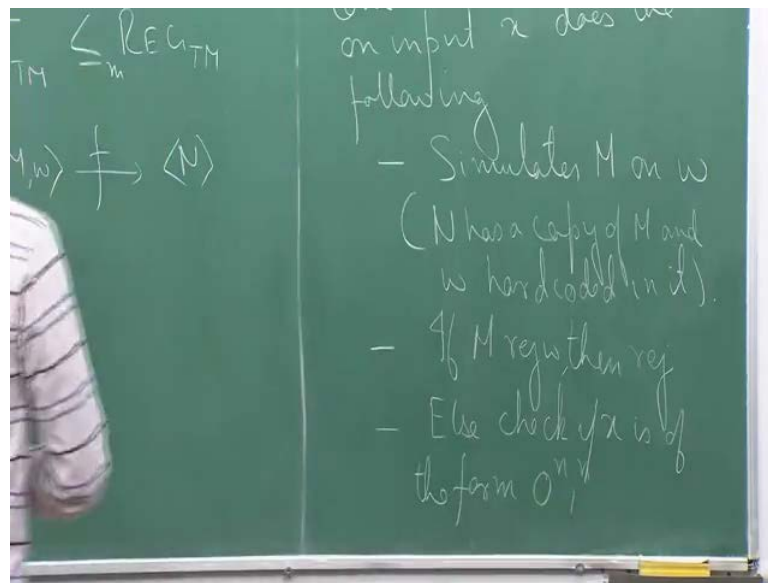 TM ≤m REGTM
M,w⟩ ⟼f ⟨N⟩
on input x does the
following
— Simulates M on w
(N has a copy of M and
w hardcoded in it).
— If M rej w, then rej
— Else check if x is of
the form 0ⁿ1ⁿ